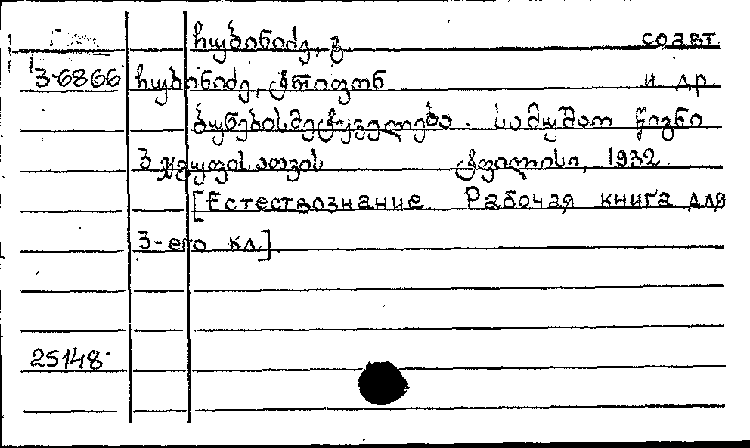 ჩუბინიძე, გ. соавт.
3-6866 ჩუბინიძე, ტრიფონ и др.
ბუნებისმეტყველება. სამუშაო წიგნი
3 ჯგუფისათვის ტფილისი, 1932.
[Естествознание. Рабочая книга для
3-его кл.]
25148